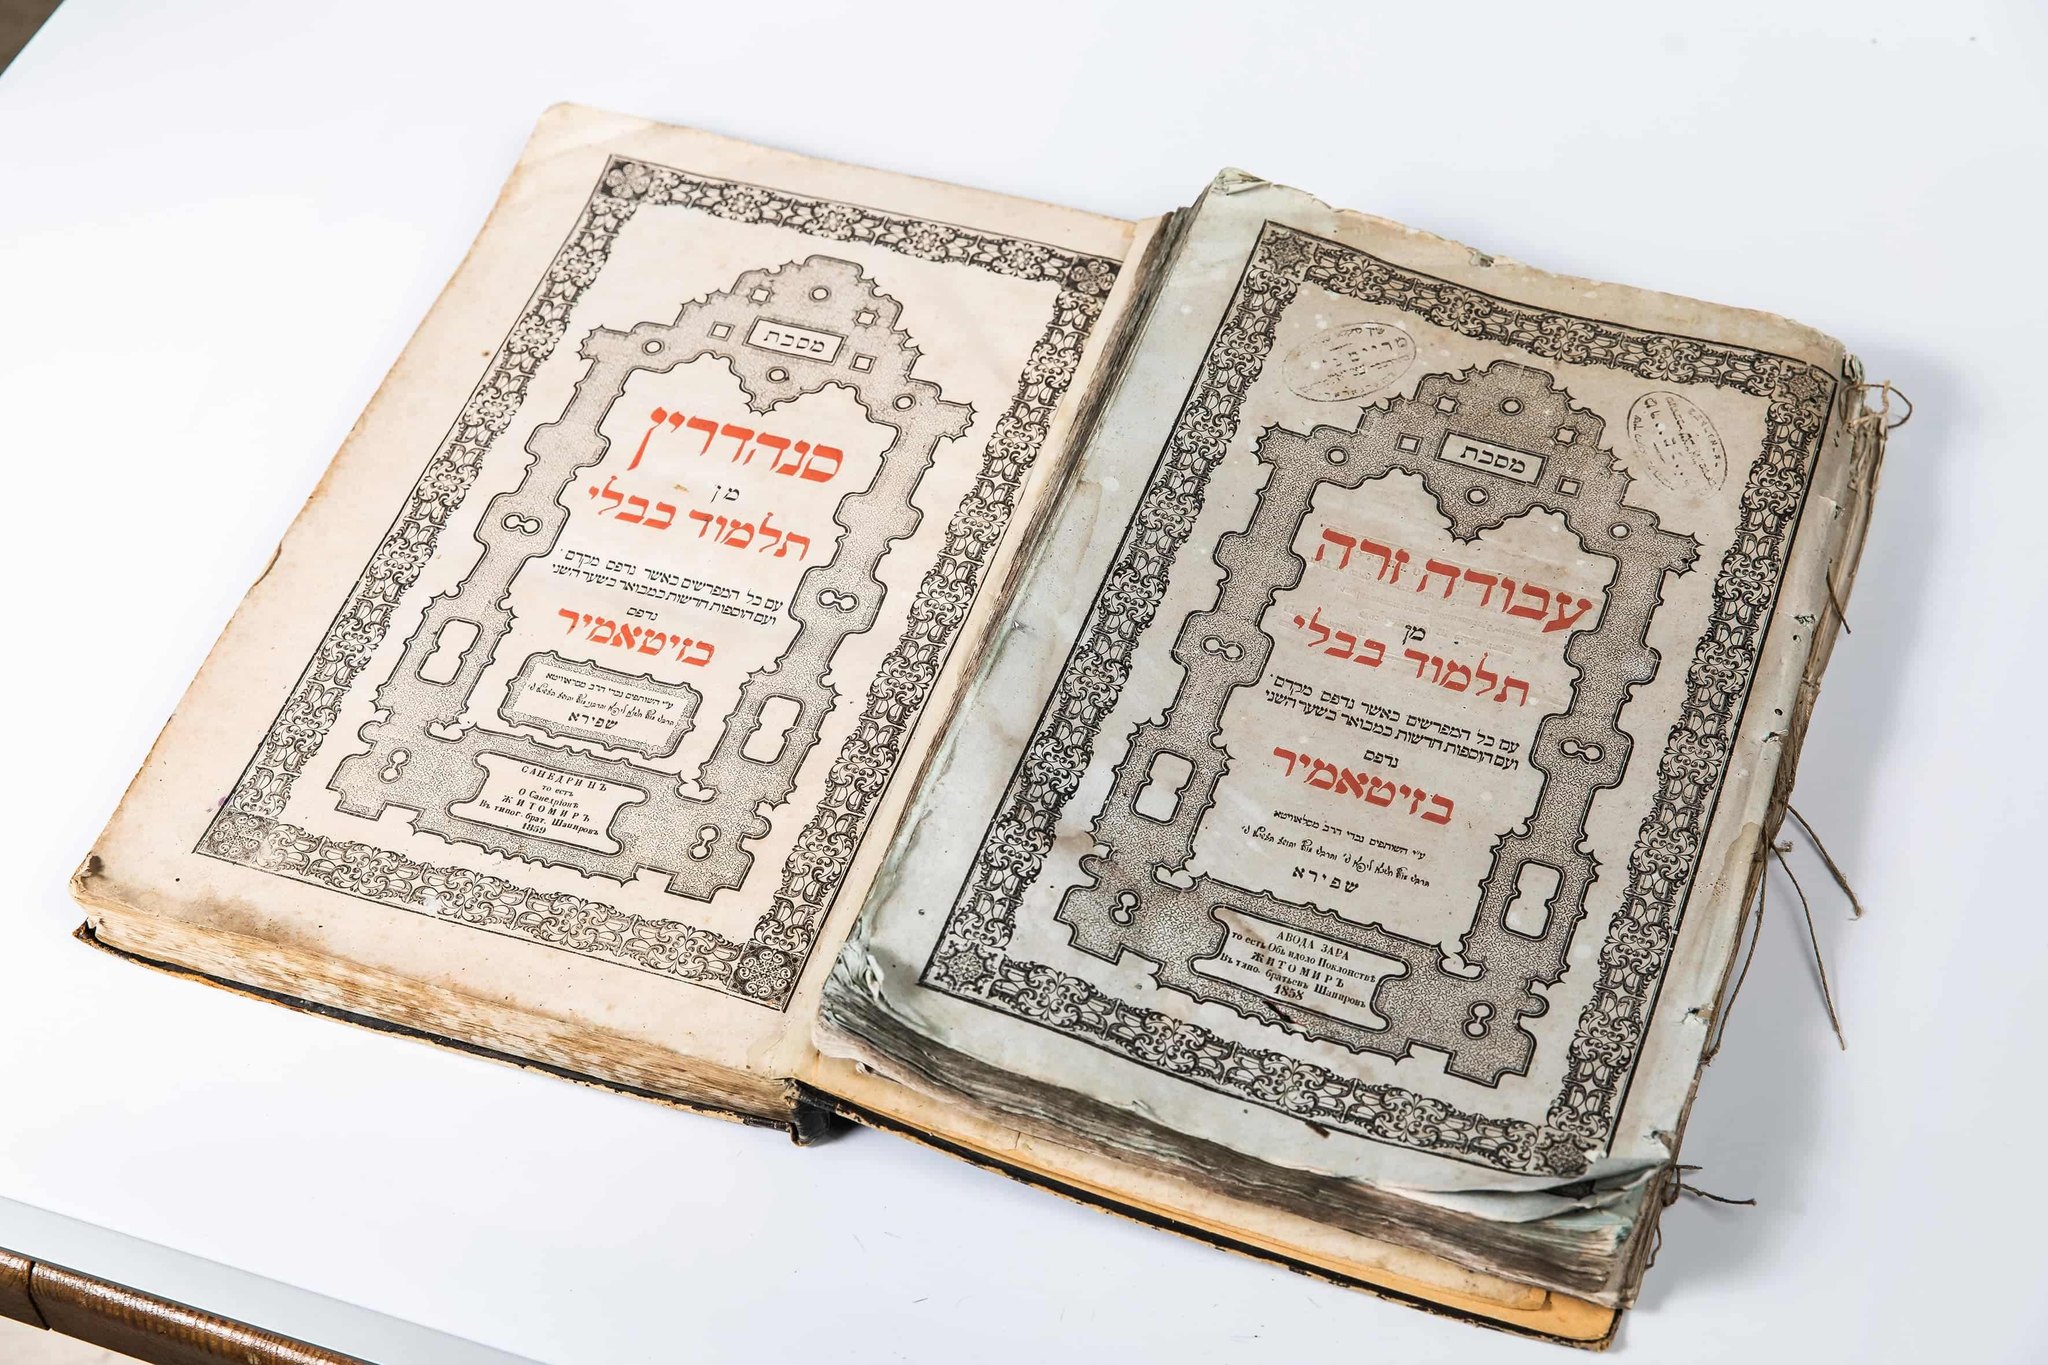 מסכת
סנהדרין
מן
תלמוד בבלי
עם כל המפרשים כאשר נדפס מקדם
ועם הוספות חדשות כמבואר בשער השני
נדפס
בזיטאמיר
ע״י השותפים נכדי הרב מסלאוויטא
שפירא
САНЕДРИНЪ
то есть
О Санедріонѣ
ЖИТОМИРЪ
Въ типог. брат. Шапировъ
1859
מסכת
עבודה זרה
מן
תלמוד בבלי
עם כל המפרשים כאשר נדפס מקדם
ועם הוספות חדשות כמבואר בשער השני
נדפס
בזיטאמיר
ע״י השותפים נכדי הרב מסלאוויטא
שפירא
АВОДА ЗАРА
то есть Объ идоло Поклонствѣ
ЖИТОМИРЪ
Въ типо. братьевъ Шапировъ
1858